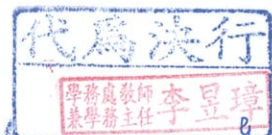 代為決行
學務處教師
兼學務主任 李昱璋